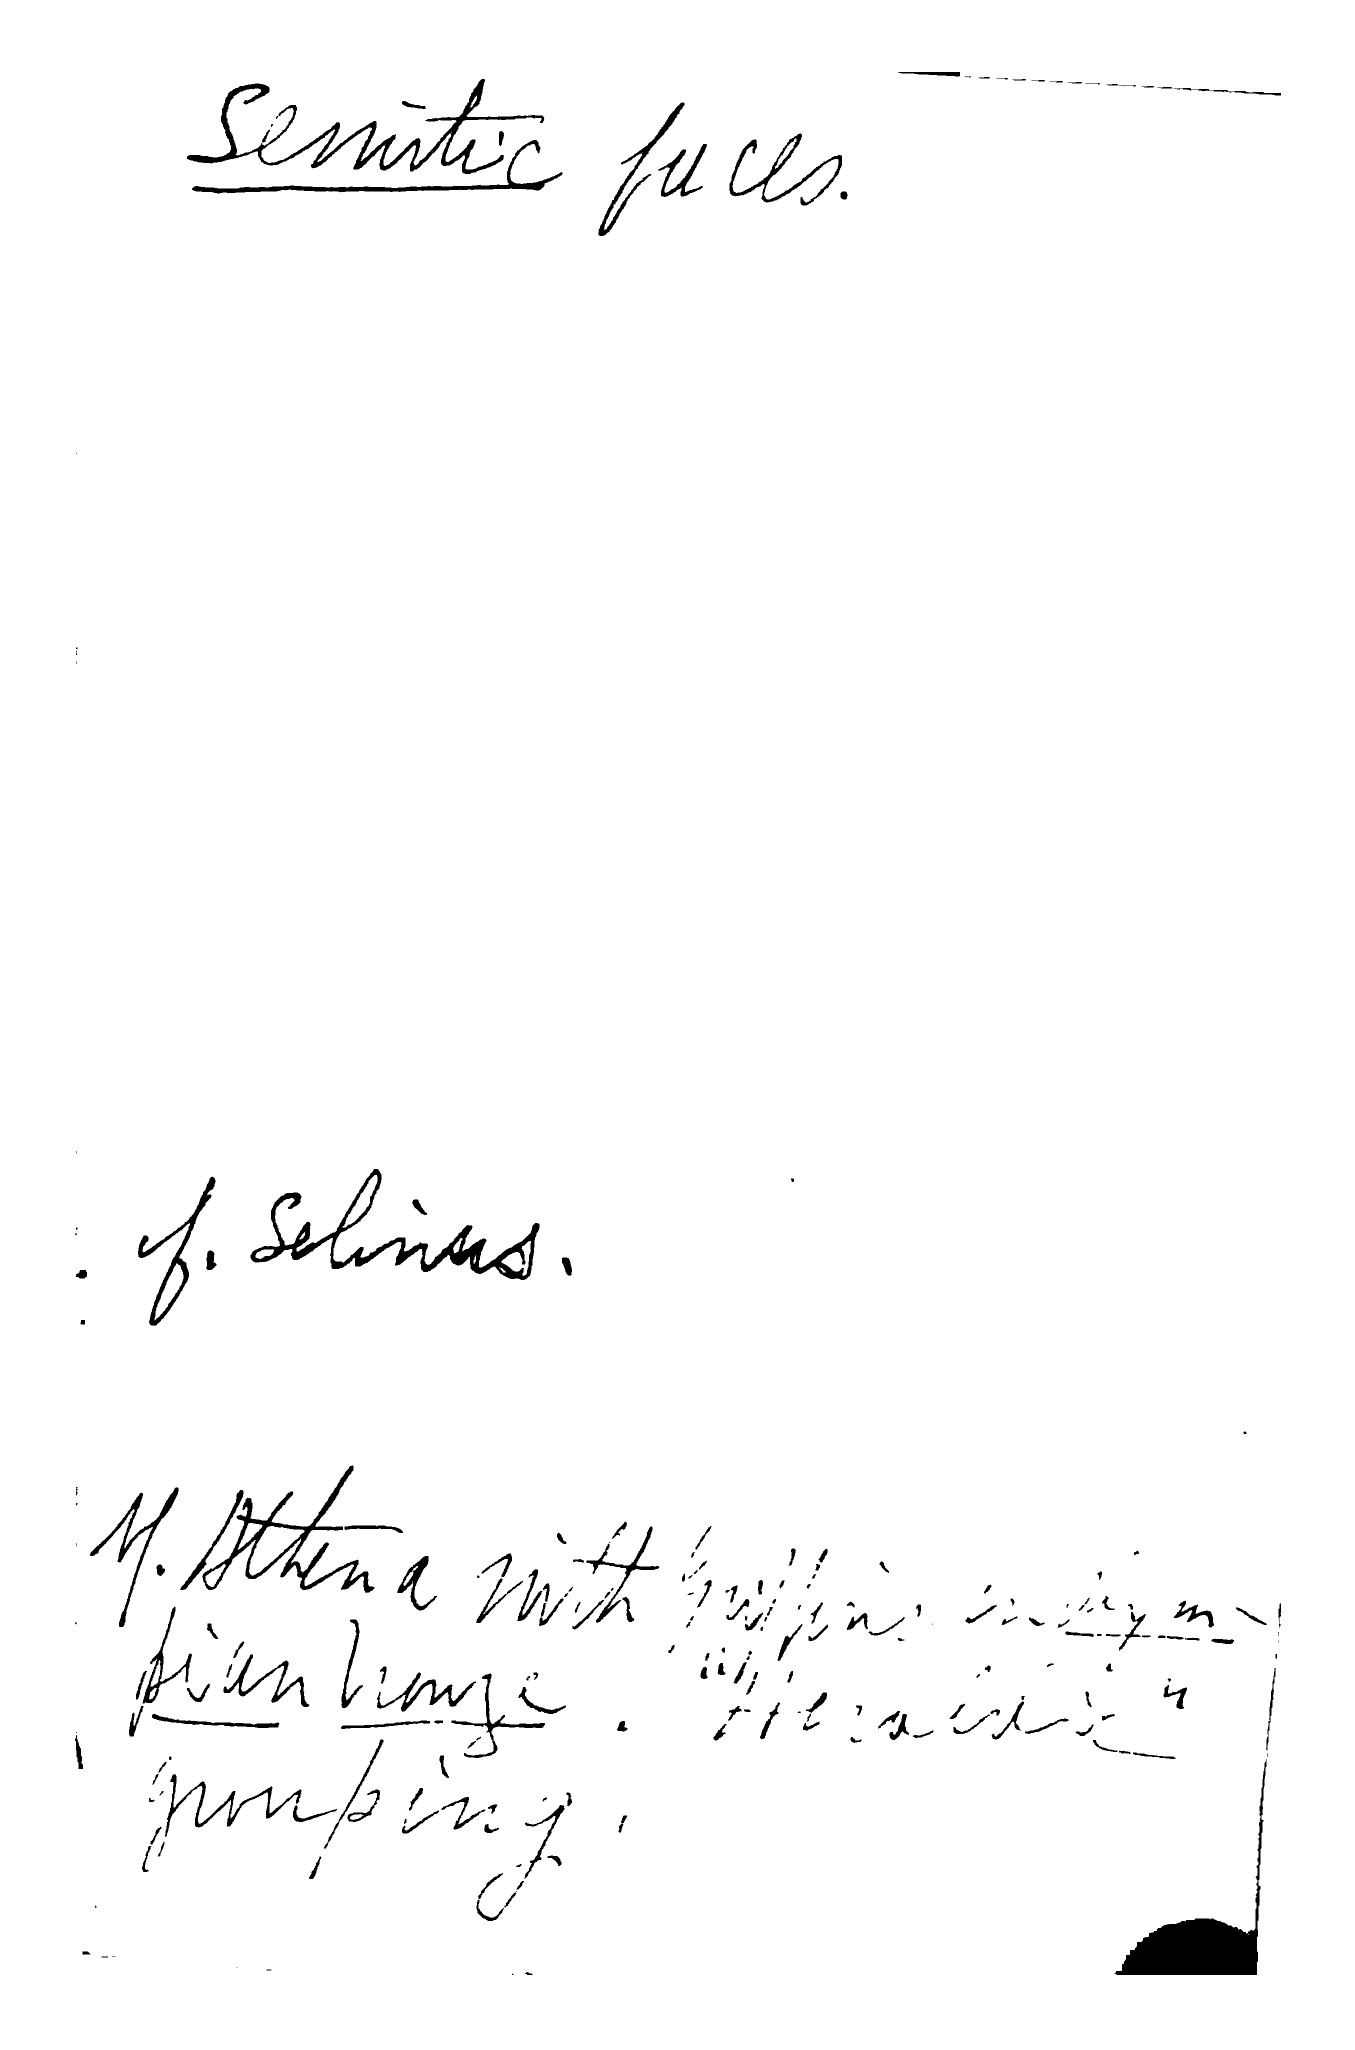 Semitic faces.
cf. Selinus.
cf. Athena with Griffins in Olym-
pian bronze. "Heraldic"
grouping.